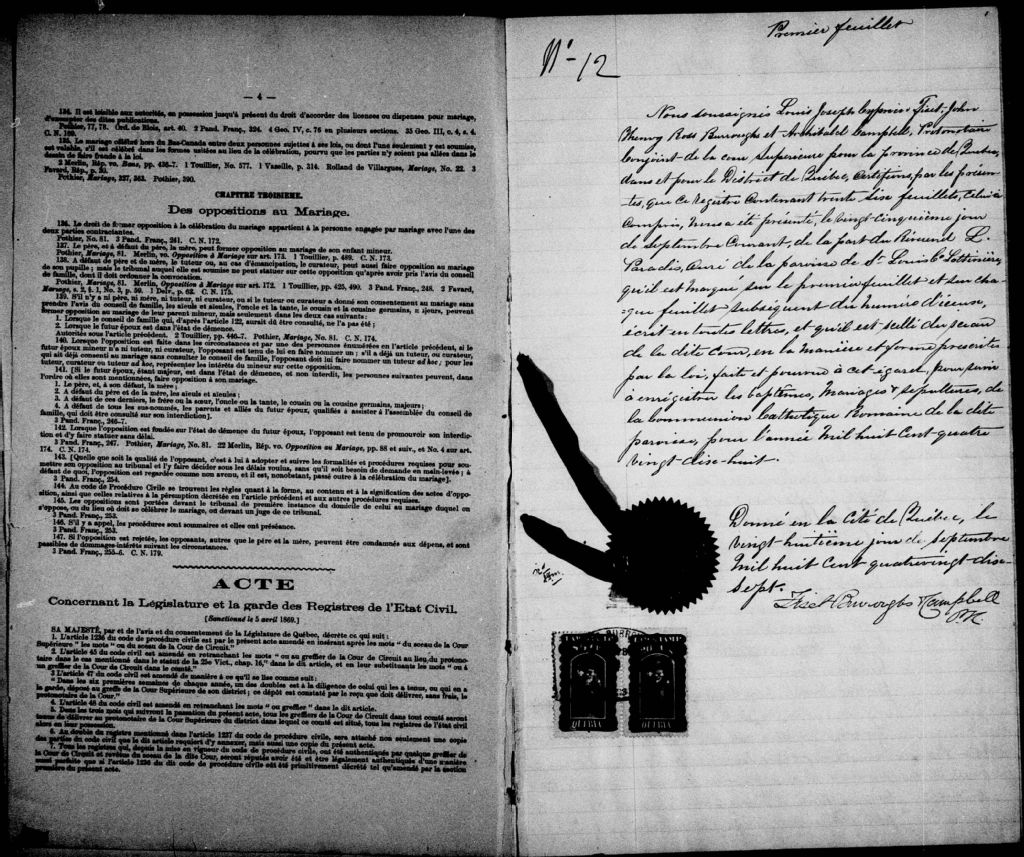 — 4 —
134. Il est loisible aux autorités, en possession jusqu'à présent du droit d'accorder des licences ou dispenses pour mariage,
d'exempter des dites publications.
Pothier, 77, 78. Ord. de Blois, art. 40. 2 Pand. Franç., 324. 4 Geo. IV, c. 76 en plusieurs sections. 35 Geo. III, c. 4, s. 4.
C. N. 169.
135. Le mariage célébré hors du Bas-Canada entre deux personnes sujettes à ses lois, ou dont l'une seulement y est soumise,
est valable, s'il est célébré dans les formes usitées au lieu de la célébration, pourvu que les parties n'y soient pas allées dans le
dessein de faire fraude à la loi.
2 Merlin, Rép. vo. Bans, pp. 436-7. 1 Touillier, No. 577. 1 Vazeille, p. 314. Rolland de Villargues, Mariage, No. 22. 3
Favard, Rép., p. 20.
Pothier, Mariage, 327, 363. Pothier, 390.
CHAPITRE TROISIEME.
Des oppositions au Mariage.
136. Le droit de former opposition à la célébration du mariage appartient à la personne engagée par mariage avec l'une des
deux parties contractantes.
Pothier, No. 81. 3 Pand. Franç., 241. C. N. 172.
137. Le père, et à défaut du père, la mère, peut former opposition au mariage de son enfant mineur.
Pothier, Mariage, 81. Merlin, vo. Opposition à Mariage sur art. 173. 1 Touillier, p. 489. C. N. 173.
138. A défaut de père et de mère, le tuteur ou, au cas d'émancipation, le curateur, peut aussi faire opposition au mariage
de son pupille ; mais le tribunal auquel elle est soumise ne peut statuer sur cette opposition qu'après avoir pris l'avis du conseil
de famille, dont il doit ordonner la convocation.
Pothier, Mariage, 81. Merlin, Opposition à Mariage sur art. 172. 1 Touillier, pp. 425, 490. 3 Pand. Franç., 248. 2 Favard,
Mariage, s. 2, § 1, No. 3, p. 60. 1 Delv., p. 63. C. N. 175.
139. S'il n'y a ni père, ni mère, ni tuteur, ni curateur, ou si le tuteur ou curateur a donné son consentement au mariage sans
prendre l'avis du conseil de famille, les aïeuls et aïeules, l'oncle et la tante, le cousin et la cousine germains, majeurs, peuvent
former opposition au mariage de leur parent mineur, mais seulement dans les deux cas suivants :
1. Lorsque le conseil de famille qui, d'après l'article 122, aurait dû être consulté, ne l'a pas été ;
2. Lorsque le futur époux est dans l'état de démence.
Autorités sous l'article précédent. 2 Touillier, pp. 446-7. Pothier, Mariage, No. 81. C. N. 174.
140. Lorsque l'opposition est faite dans les circonstances et par une des personnes énumérées en l'article précédent, si le
futur époux mineur n'a ni tuteur, ni curateur, l'opposant est tenu de lui en faire nommer un ; s'il a déjà un tuteur, ou curateur,
qui ait déjà consenti au mariage sans consulter le conseil de famille, l'opposant doit lui faire nommer un tuteur ad hoc ; pour les
tuteur, curateur ou tuteur ad hoc, représenter les intérêts du mineur sur cette opposition.
141. [Si le futur époux, étant majeur, est dans l'état de démence, et non interdit, les personnes suivantes peuvent, dans
l'ordre où elles sont mentionnées, faire opposition à son mariage.
1. Le père, et, à son défaut, la mère ;
2. A défaut du père et de la mère, les aïeuls et aïeules ;
3. A défaut de ces derniers, le frère ou la sœur, l'oncle ou la tante, le cousin ou la cousine germains, majeurs ;
4. A défaut de tous les sus-nommés, les parents et alliés du futur époux, qualifiés à assister à l'assemblée du conseil de
famille, qui doit être consulté sur son interdiction].
3 Pand. Franç., 246-7.
142. Lorsque l'opposition est fondée sur l'état de démence du futur époux, l'opposant est tenu de promouvoir son interdic-
tion et d'y faire statuer sans délai.
3 Pand. Franç., 247. Pothier, Mariage, No. 81. 22 Merlin, Rép. vo. Opposition au Mariage, pp. 88 et suiv., et No. 4 sur art.
174. C. N. 174.
143. [Quelle que soit la qualité de l'opposant, c'est à lui à adopter et suivre les formalités et procédures requises pour sou-
mettre son opposition au tribunal et l'y faire décider sous les délais voulus, sans qu'il soit besoin de demande en main-levée ; à
défaut de quoi, l'opposition est regardée comme non avenu, et il est, nonobstant, passé outre à la célébration du mariage].
3 Pand. Franç., 254.
144. Au code de Procédure Civile se trouvent les règles quant à la forme, au contenu et à la signification des actes d'oppo-
sition, ainsi que celles relatives à la péremption décrétée en l'article précédent et aux autres procédures requises.
145. Les oppositions sont portées devant le tribunal de première instance du domicile de celui au mariage duquel on
s'oppose, ou du lieu où doit se célébrer le mariage, ou devant un juge de ce tribunal.
3 Pand. Franç., 253.
146. S'il y a appel, les procédures sont sommaires et elles ont préséance.
3 Pand. Franç., 253.
147. Si l'opposition est rejetée, les opposants, autres que le père et la mère, peuvent être condamnés aux dépens, et sont
passibles de dommages-intérêts suivant les circonstances.
3 Pand. Franç., 255-6. C. N. 179.
ACTE
Concernant la Législature et la garde des Registres de l'Etat Civil.
[Sanctionné le 5 avril 1869.]
SA MAJESTÉ, par et de l'avis et du consentement de la Législature de Québec, décrète ce qui suit :
1. L'article 1236 du code de procédure civile est par le présent acte amendé en insérant après les mots "du sceau de la Cour
Supérieure" les mots "ou du sceau de la Cour de Circuit."
2. L'article 45 du code civil est amendé en retranchant les mots "ou au greffier de la Cour de Circuit au lieu du protono-
taire dans le cas mentionné dans le statut de la 25e Vict., chap. 16," dans le dit article, et en leur substituant les mots "ou à
un greffier de la Cour de Circuit dans le comté."
3. L'article 47 du code civil est amendé de manière à ce qu'il se lise comme suit :
"Dans les six premières semaines de chaque année, un des doubles est à la diligence de celui qui les a tenus, ou qui en a
la garde, déposé au greffe de la Cour Supérieure de son district ; ce dépôt est constaté par le reçu que doit délivrer, sans frais, le
protonotaire de la Cour."
4. L'article 48 du code civil est amendé en retranchant les mots "ou greffier" dans le dit article.
5. Dans les trois mois qui suivront la passation du présent acte, tous les greffiers de la Cour de Circuit dans tout comté seront
tenus de délivrer au protonotaire de la Cour Supérieure du district dans lequel ce comté est situé, tous les registres de l'état civil
alors en leur possession.
6. Au double du registre mentionné dans l'article 1237 du code de procédure civile, sera attaché non seulement une copie
des parties du code civil que le dit article requiert d'y annexer, mais aussi une copie du présent acte.
7. Tous les registres qui, depuis la mise en vigueur du code de procédure civile, ont été authentiqués par quelque greffier de
la Cour de Circuit et revêtus du sceau de la dite Cour, seront réputés avoir été et être légalement authentiqués d'une manière
aussi parfaite que si l'article 1236 du dit code de procédure civile eût été primitivement décrété tel qu'amendé par la section
première du présent acte.
Premier feuillet
No 12
Nous soussignés Louis Joseph Cyprien Fiset, John
Henry Ross Burroughs et Archibald Campbell, Protonotaire
Conjoint de la cour Supérieure pour la province de Québec,
dans et pour le District de Québec, Certifions par les présen-
tes, que ce Registre Contenant trente six feuillets, celui-ci
Compris, nous a été présenté, le vingt cinquième jour
de septembre Courant, de la part du Révérend L.
Paradis, Curé de la paroisse de St Louis de Lotbinière,
qu'il est marqué sur le premier feuillet et sur cha-
que feuillet subséquent du numéro d'iceux,
écrit en toutes lettres, et qu'il est scellé du sceau
de la dite Cour, en la manière et forme prescrites
par la loi, faite et pourvue à cet égard, pour servir
à enregistrer les baptêmes, Mariages & sépultures, de
la Communion Catholique Romaine de la dite
paroisse, pour l'année Mil huit Cent quatre
vingt-dix-huit.
Donné en la Cité de Québec, le
vingt huitième jour de septembre
Mil huit Cent quatrevingt dix-
sept.
Fiset Burroughs & Campbell
QUEBEC
QUEBEC